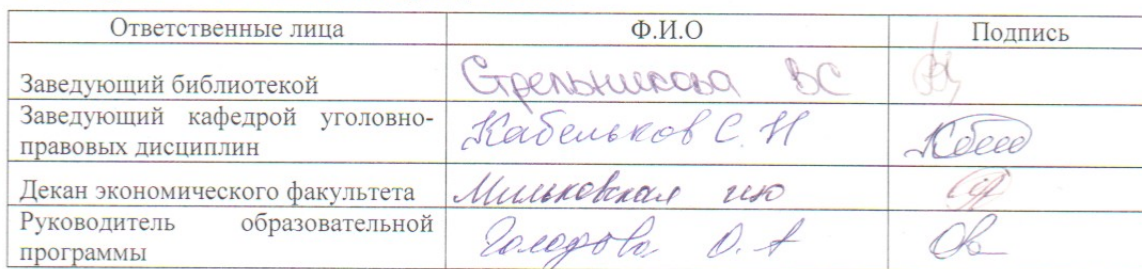 Ответственные лица Ф.И.О Подпись
Заведующий библиотекой Стрельникова ВС
Заведующий кафедрой уголовно-
правовых дисциплин Кабельков С. Н
Декан экономического факультета Мильковская
Руководитель образовательной
программы О. А